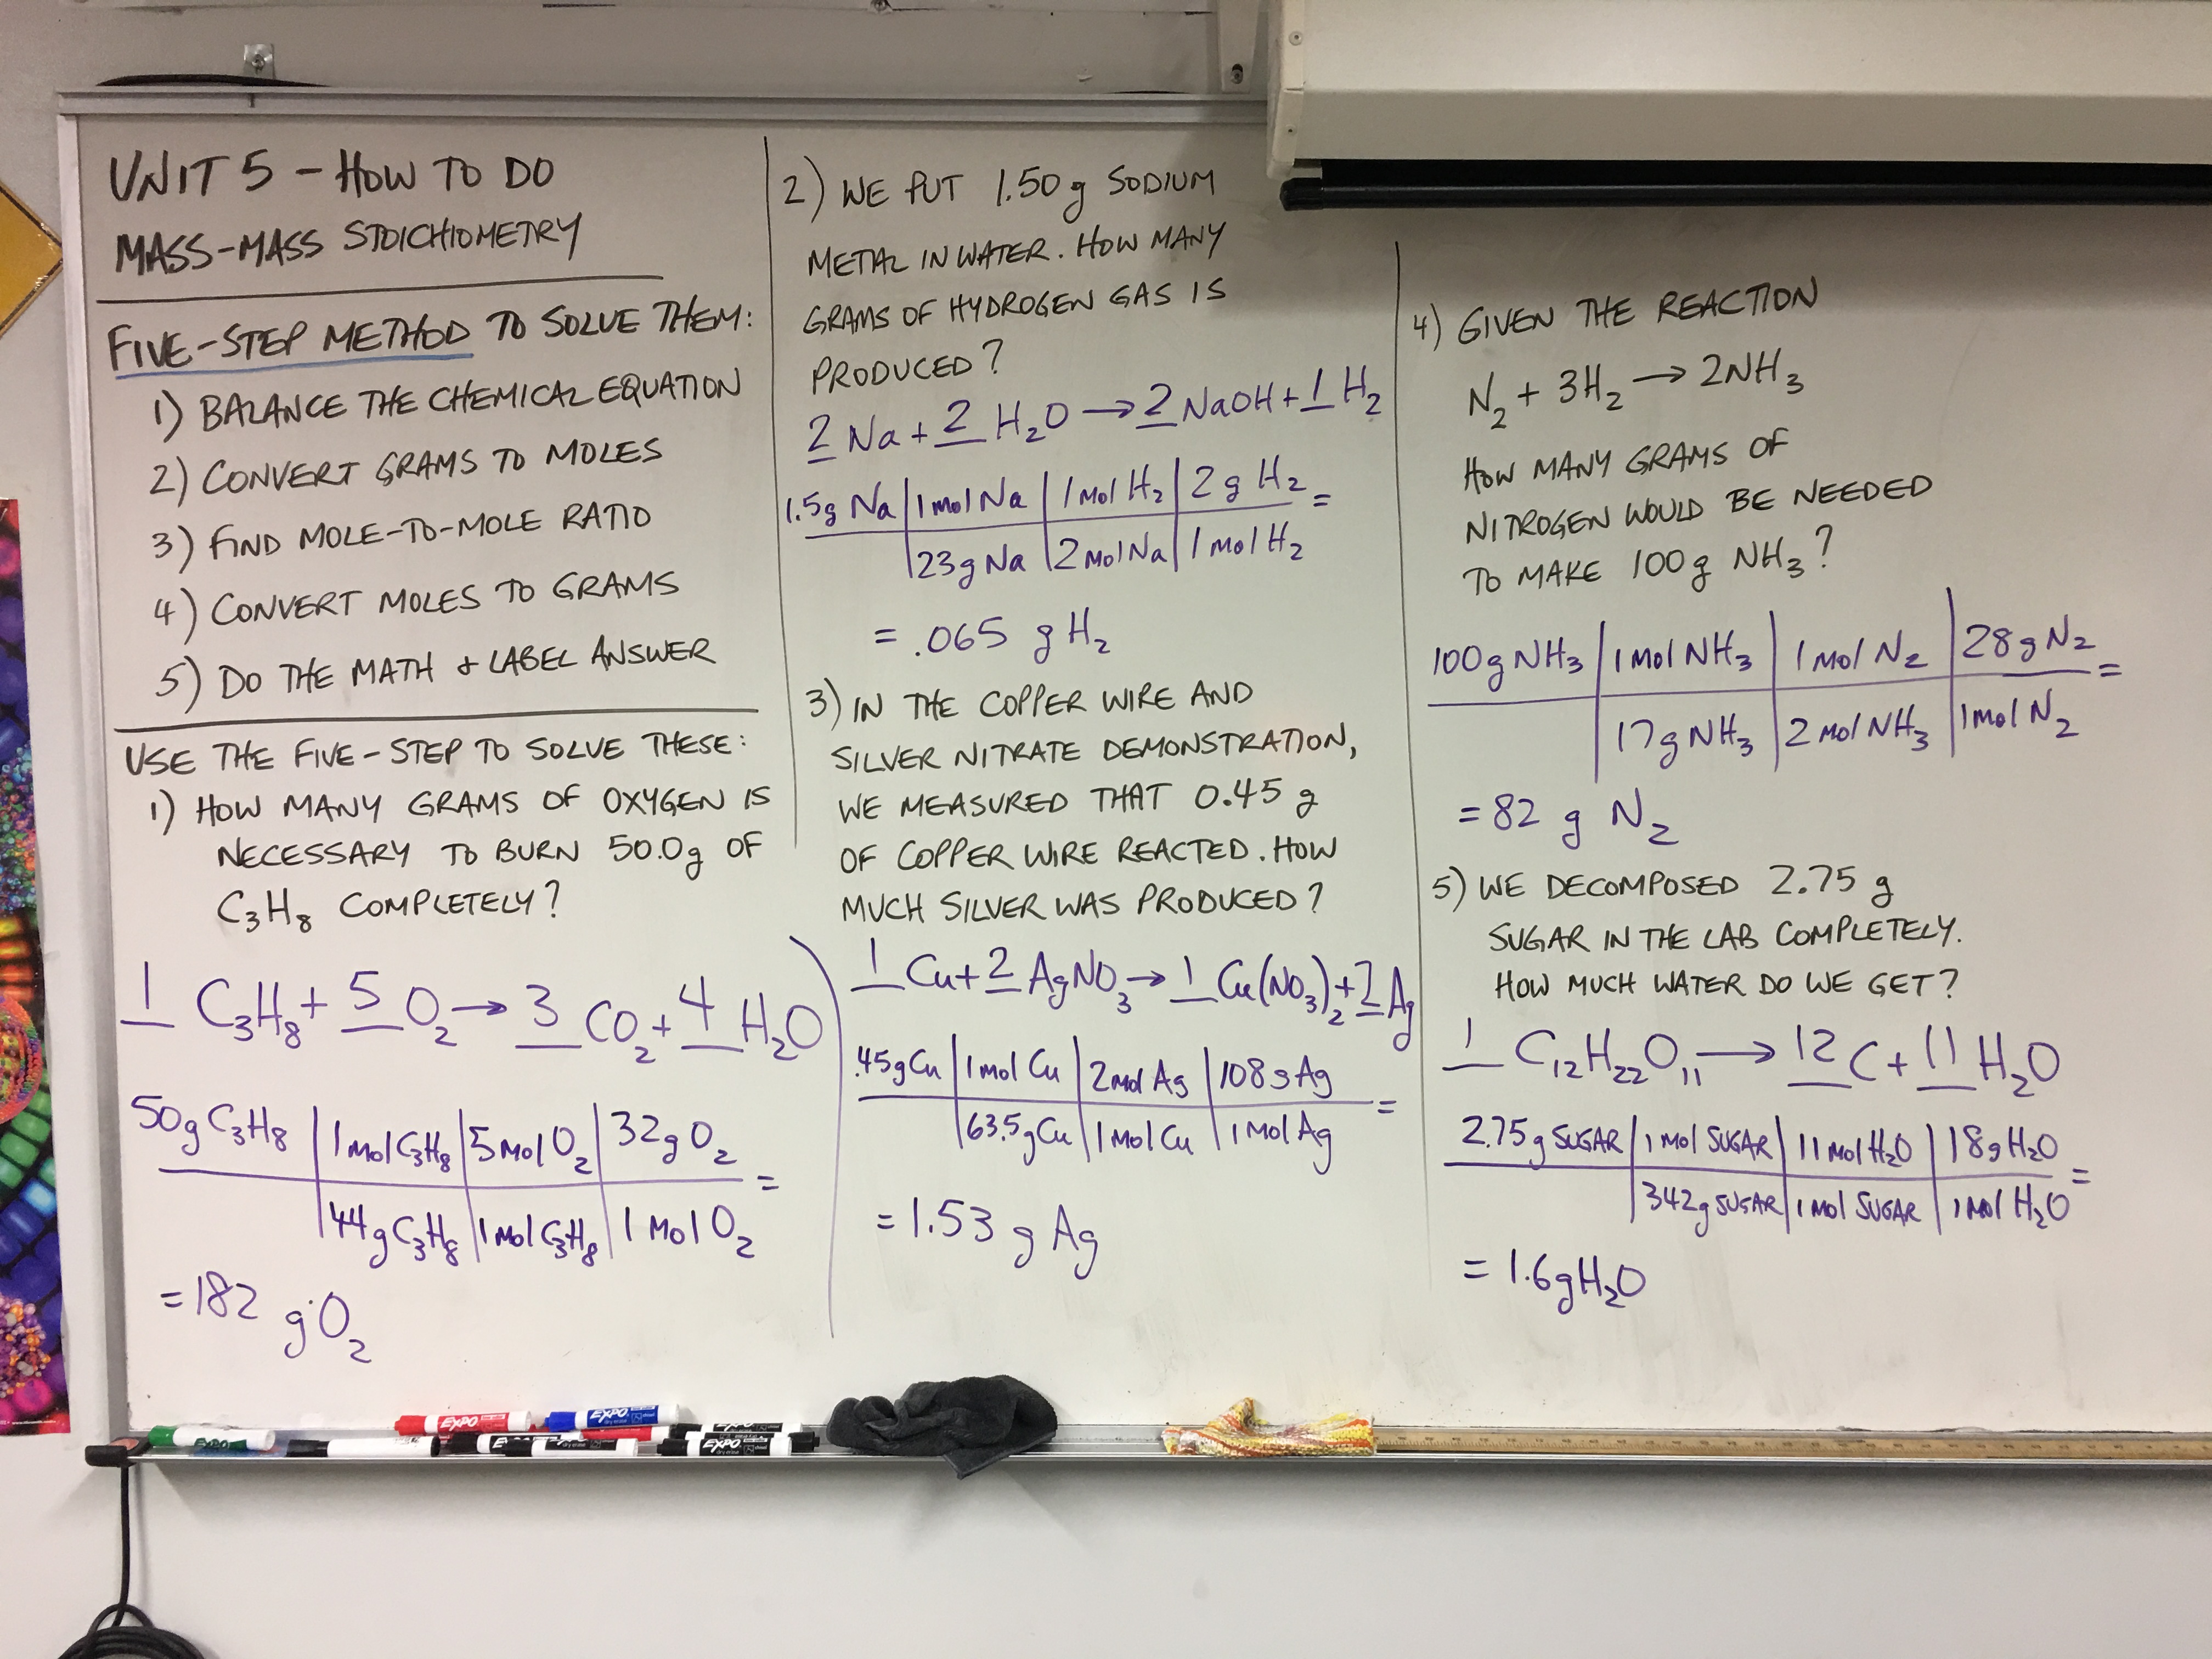 UNIT 5 - HOW TO DO
MASS-MASS STOICHIOMETRY
FIVE-STEP METHOD TO SOLVE THEM:
1) BALANCE THE CHEMICAL EQUATION
2) CONVERT GRAMS TO MOLES
3) FIND MOLE-TO-MOLE RATIO
4) CONVERT MOLES TO GRAMS
5) DO THE MATH & LABEL ANSWER
USE THE FIVE-STEP TO SOLVE THESE:
1) HOW MANY GRAMS OF OXYGEN IS
NECESSARY TO BURN 50.0g OF
C₃H₈ COMPLETELY?
1 C₃H₈ + 5 O₂ → 3 CO₂ + 4 H₂O
50g C₃H₈ | 1 mol C₃H₈ | 5 mol O₂ | 32g O₂ =
44g C₃H₈ | 1 mol C₃H₈ | 1 mol O₂
= 182 g O₂
2) WE PUT 1.50g SODIUM
METAL IN WATER. HOW MANY
GRAMS OF HYDROGEN GAS IS
PRODUCED?
2 Na + 2 H₂O → 2 NaOH + 1 H₂
1.5g Na | 1 mol Na | 1 mol H₂ | 2 g H₂ =
23g Na | 2 mol Na | 1 mol H₂
= .065 g H₂
3) IN THE COPPER WIRE AND
SILVER NITRATE DEMONSTRATION,
WE MEASURED THAT 0.45 g
OF COPPER WIRE REACTED. HOW
MUCH SILVER WAS PRODUCED?
1 Cu + 2 AgNO₃ → 1 Cu(NO₃)₂ + 2 Ag
.45g Cu | 1 mol Cu | 2 mol Ag | 108 g Ag =
63.5g Cu | 1 mol Cu | 1 mol Ag
= 1.53 g Ag
4) GIVEN THE REACTION
N₂ + 3H₂ → 2NH₃
HOW MANY GRAMS OF
NITROGEN WOULD BE NEEDED
TO MAKE 100g NH₃?
100g NH₃ | 1 mol NH₃ | 1 mol N₂ | 28g N₂ =
17g NH₃ | 2 mol NH₃ | 1 mol N₂
= 82 g N₂
5) WE DECOMPOSED 2.75 g
SUGAR IN THE LAB COMPLETELY.
HOW MUCH WATER DO WE GET?
1 C₁₂H₂₂O₁₁ → 12 C + 11 H₂O
2.75g SUGAR | 1 mol SUGAR | 11 mol H₂O | 18g H₂O =
342g SUGAR | 1 mol SUGAR | 1 mol H₂O
= 1.6g H₂O
EXPO
EXPO
EXPO
EXPO